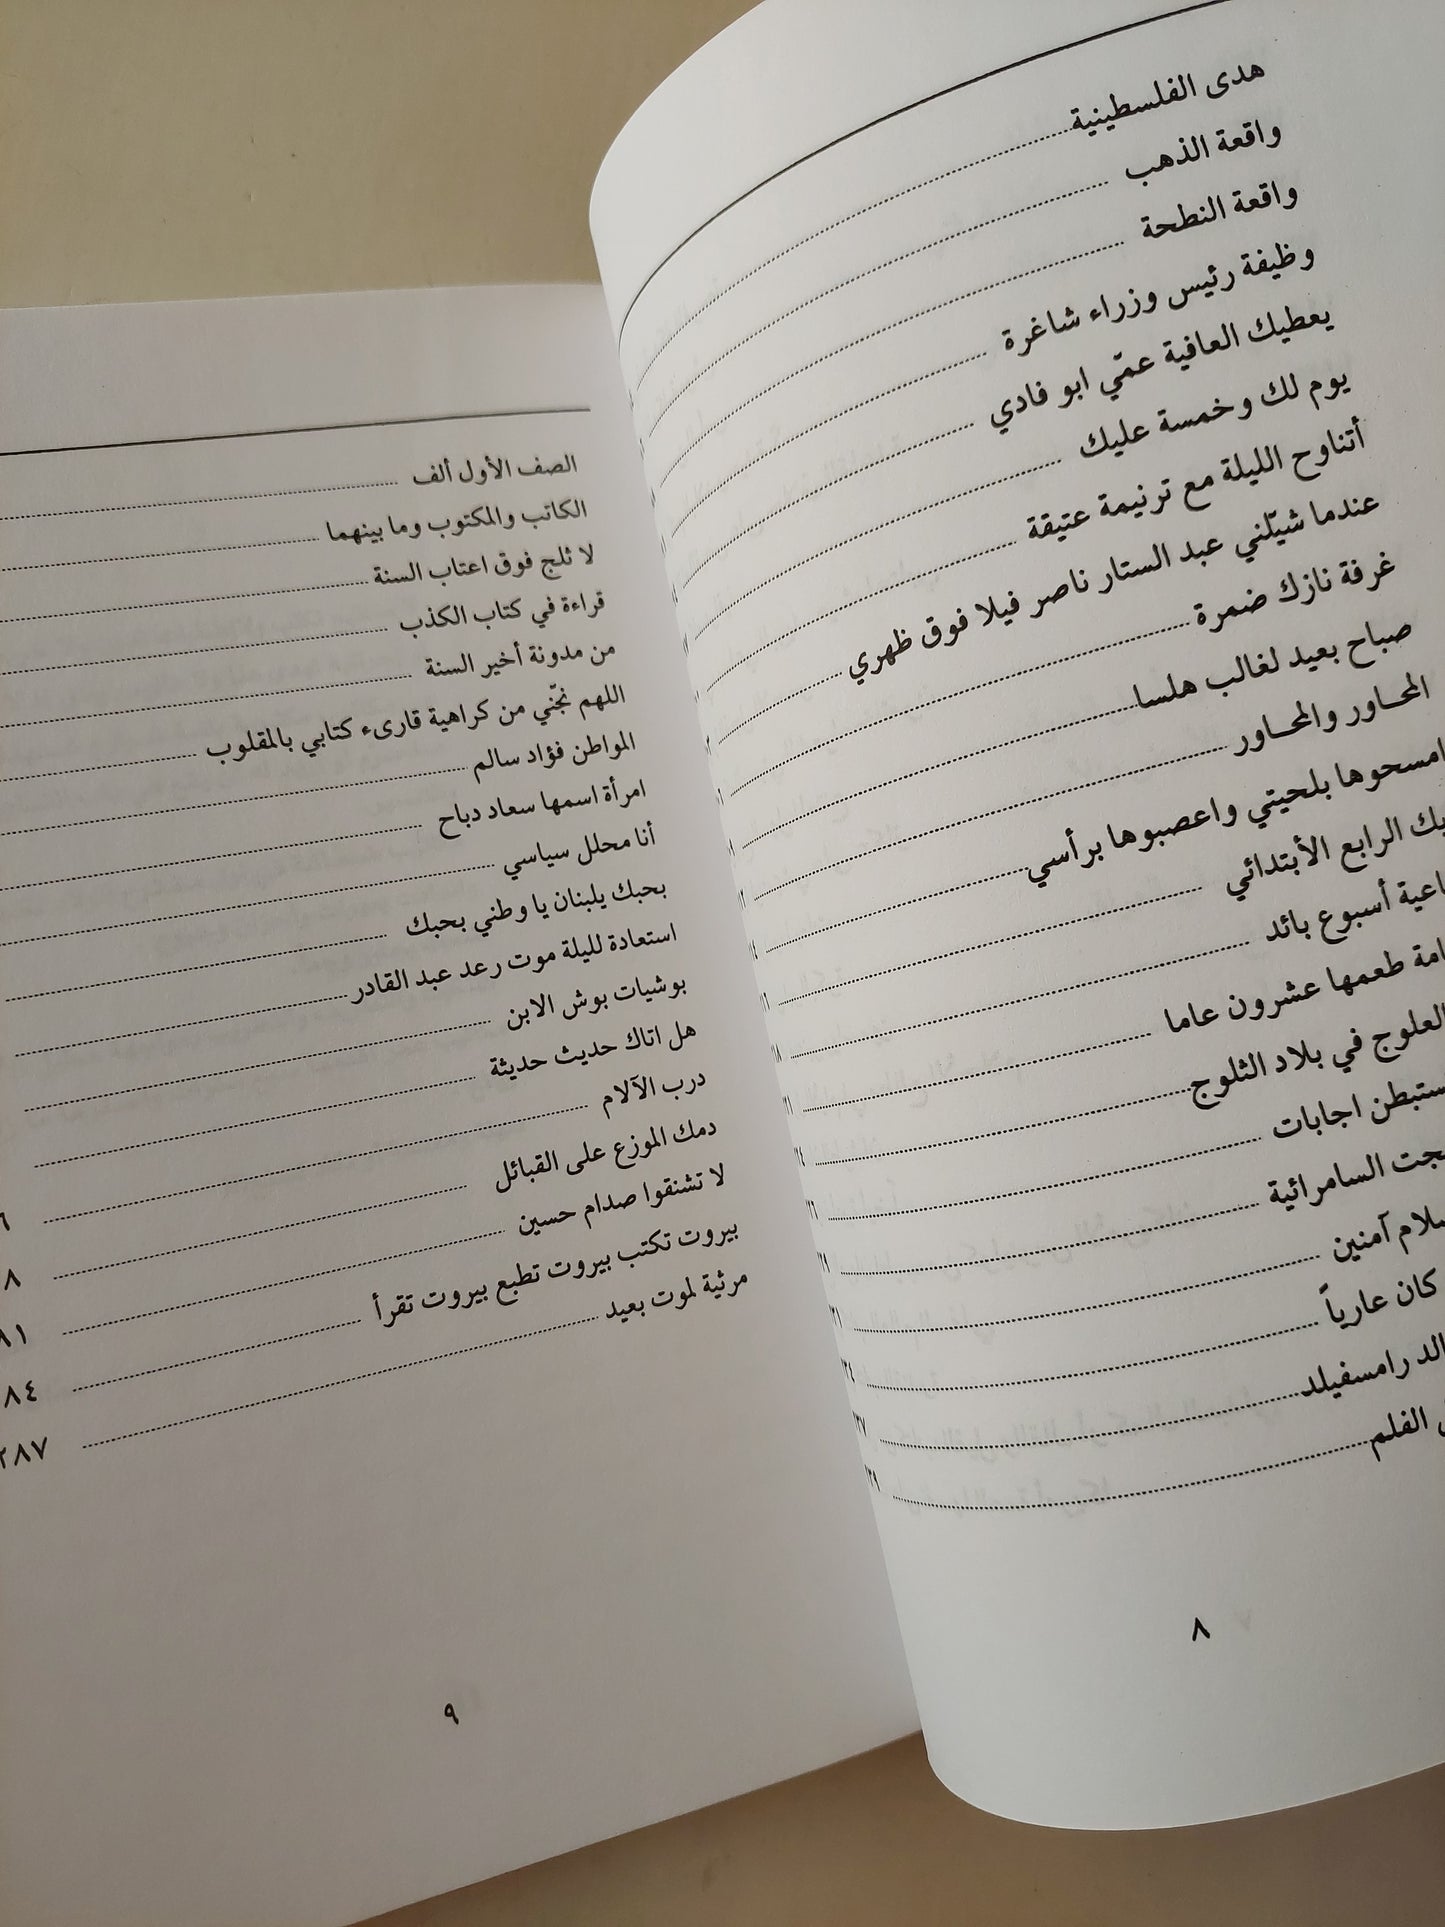 هدى الفلسطينية
واقعة الذهب
واقعة النطحة
وظيفة رئيس وزراء شاغرة
يعطيك العافية عمّي ابو فادي
يوم لك وخمسة عليك
أتناوح الليلة مع ترنيمة عتيقة
عندما شيّلني عبد الستار ناصر فيلا فوق ظهري
غرفة نازك ضمرة
صباح بعيد لغالب هلسا
المحاور والمحاور
امسحوها بلحيتي واعصبوها برأسي
الرابع الأبتدائي
أسبوع بائد
طعمها عشرون عاما
العلوج في بلاد الثلوج
اجابات
السامرائية
آمنين
كان عارياً
رامسفيلد
الفلم
٨
الصف الأول ألف
الكاتب والمكتوب وما بينهما
لا ثلج فوق اعتاب السنة
قراءة في كتاب الكذب
من مدونة أخير السنة
اللهم نجّني من كراهية قارىء كتابي بالمقلوب
المواطن فؤاد سالم
امرأة اسمها سعاد دباح
أنا محلل سياسي
بحبك يلبنان يا وطني بحبك
استعادة لليلة موت رعد عبد القادر
بوشيات بوش الابن
هل اتاك حديث حديثة
درب الآلام
دمك الموزع على القبائل
لا تشنقوا صدام حسين
بيروت تكتب بيروت تطبع بيروت تقرأ
مرثية لموت بعيد
٩